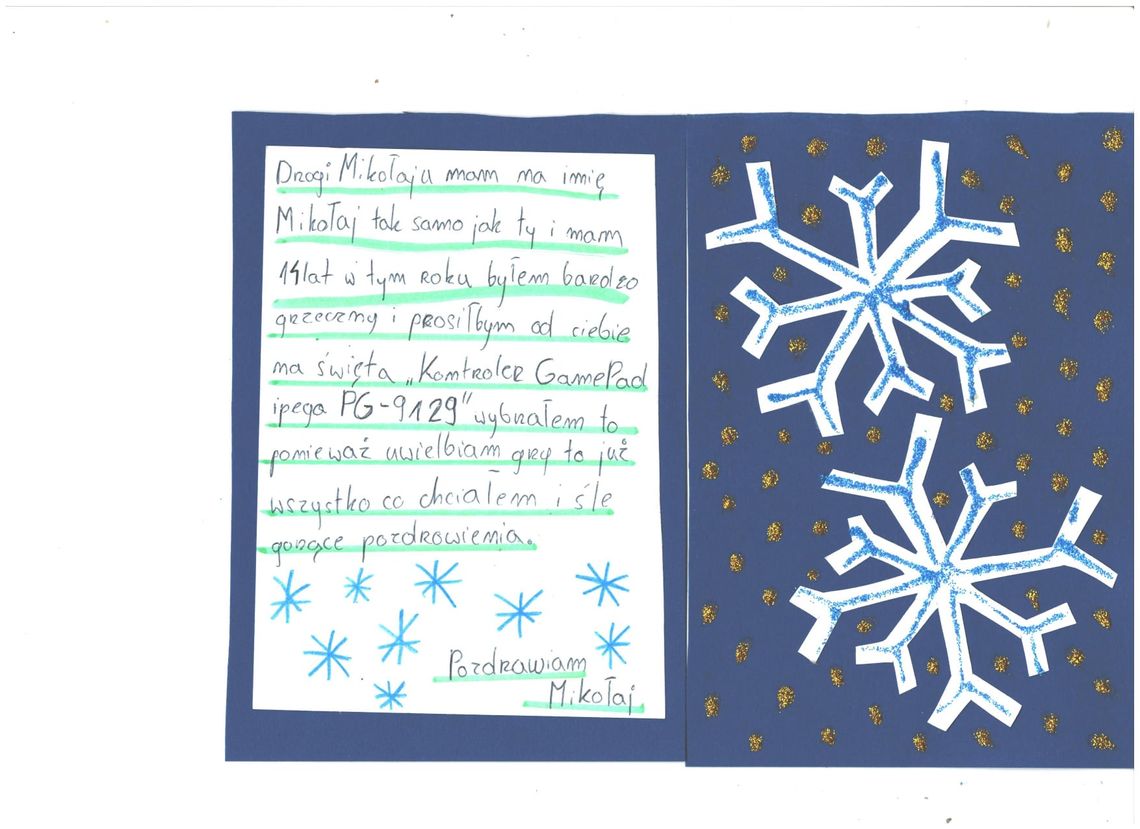 Drogi Mikołaju mam na imię
Mikołaj tak samo jak ty i mam
14lat w tym roku byłem bardzo
grzeczny i prosiłbym od ciebie
na święta „Kontroler GamePad
ipega PG-9129” wybrałem to
ponieważ uwielbiam gry to już
wszystko co chciałem i śle
gorące pozdrowienia.
Pozdrawiam
Mikołaj